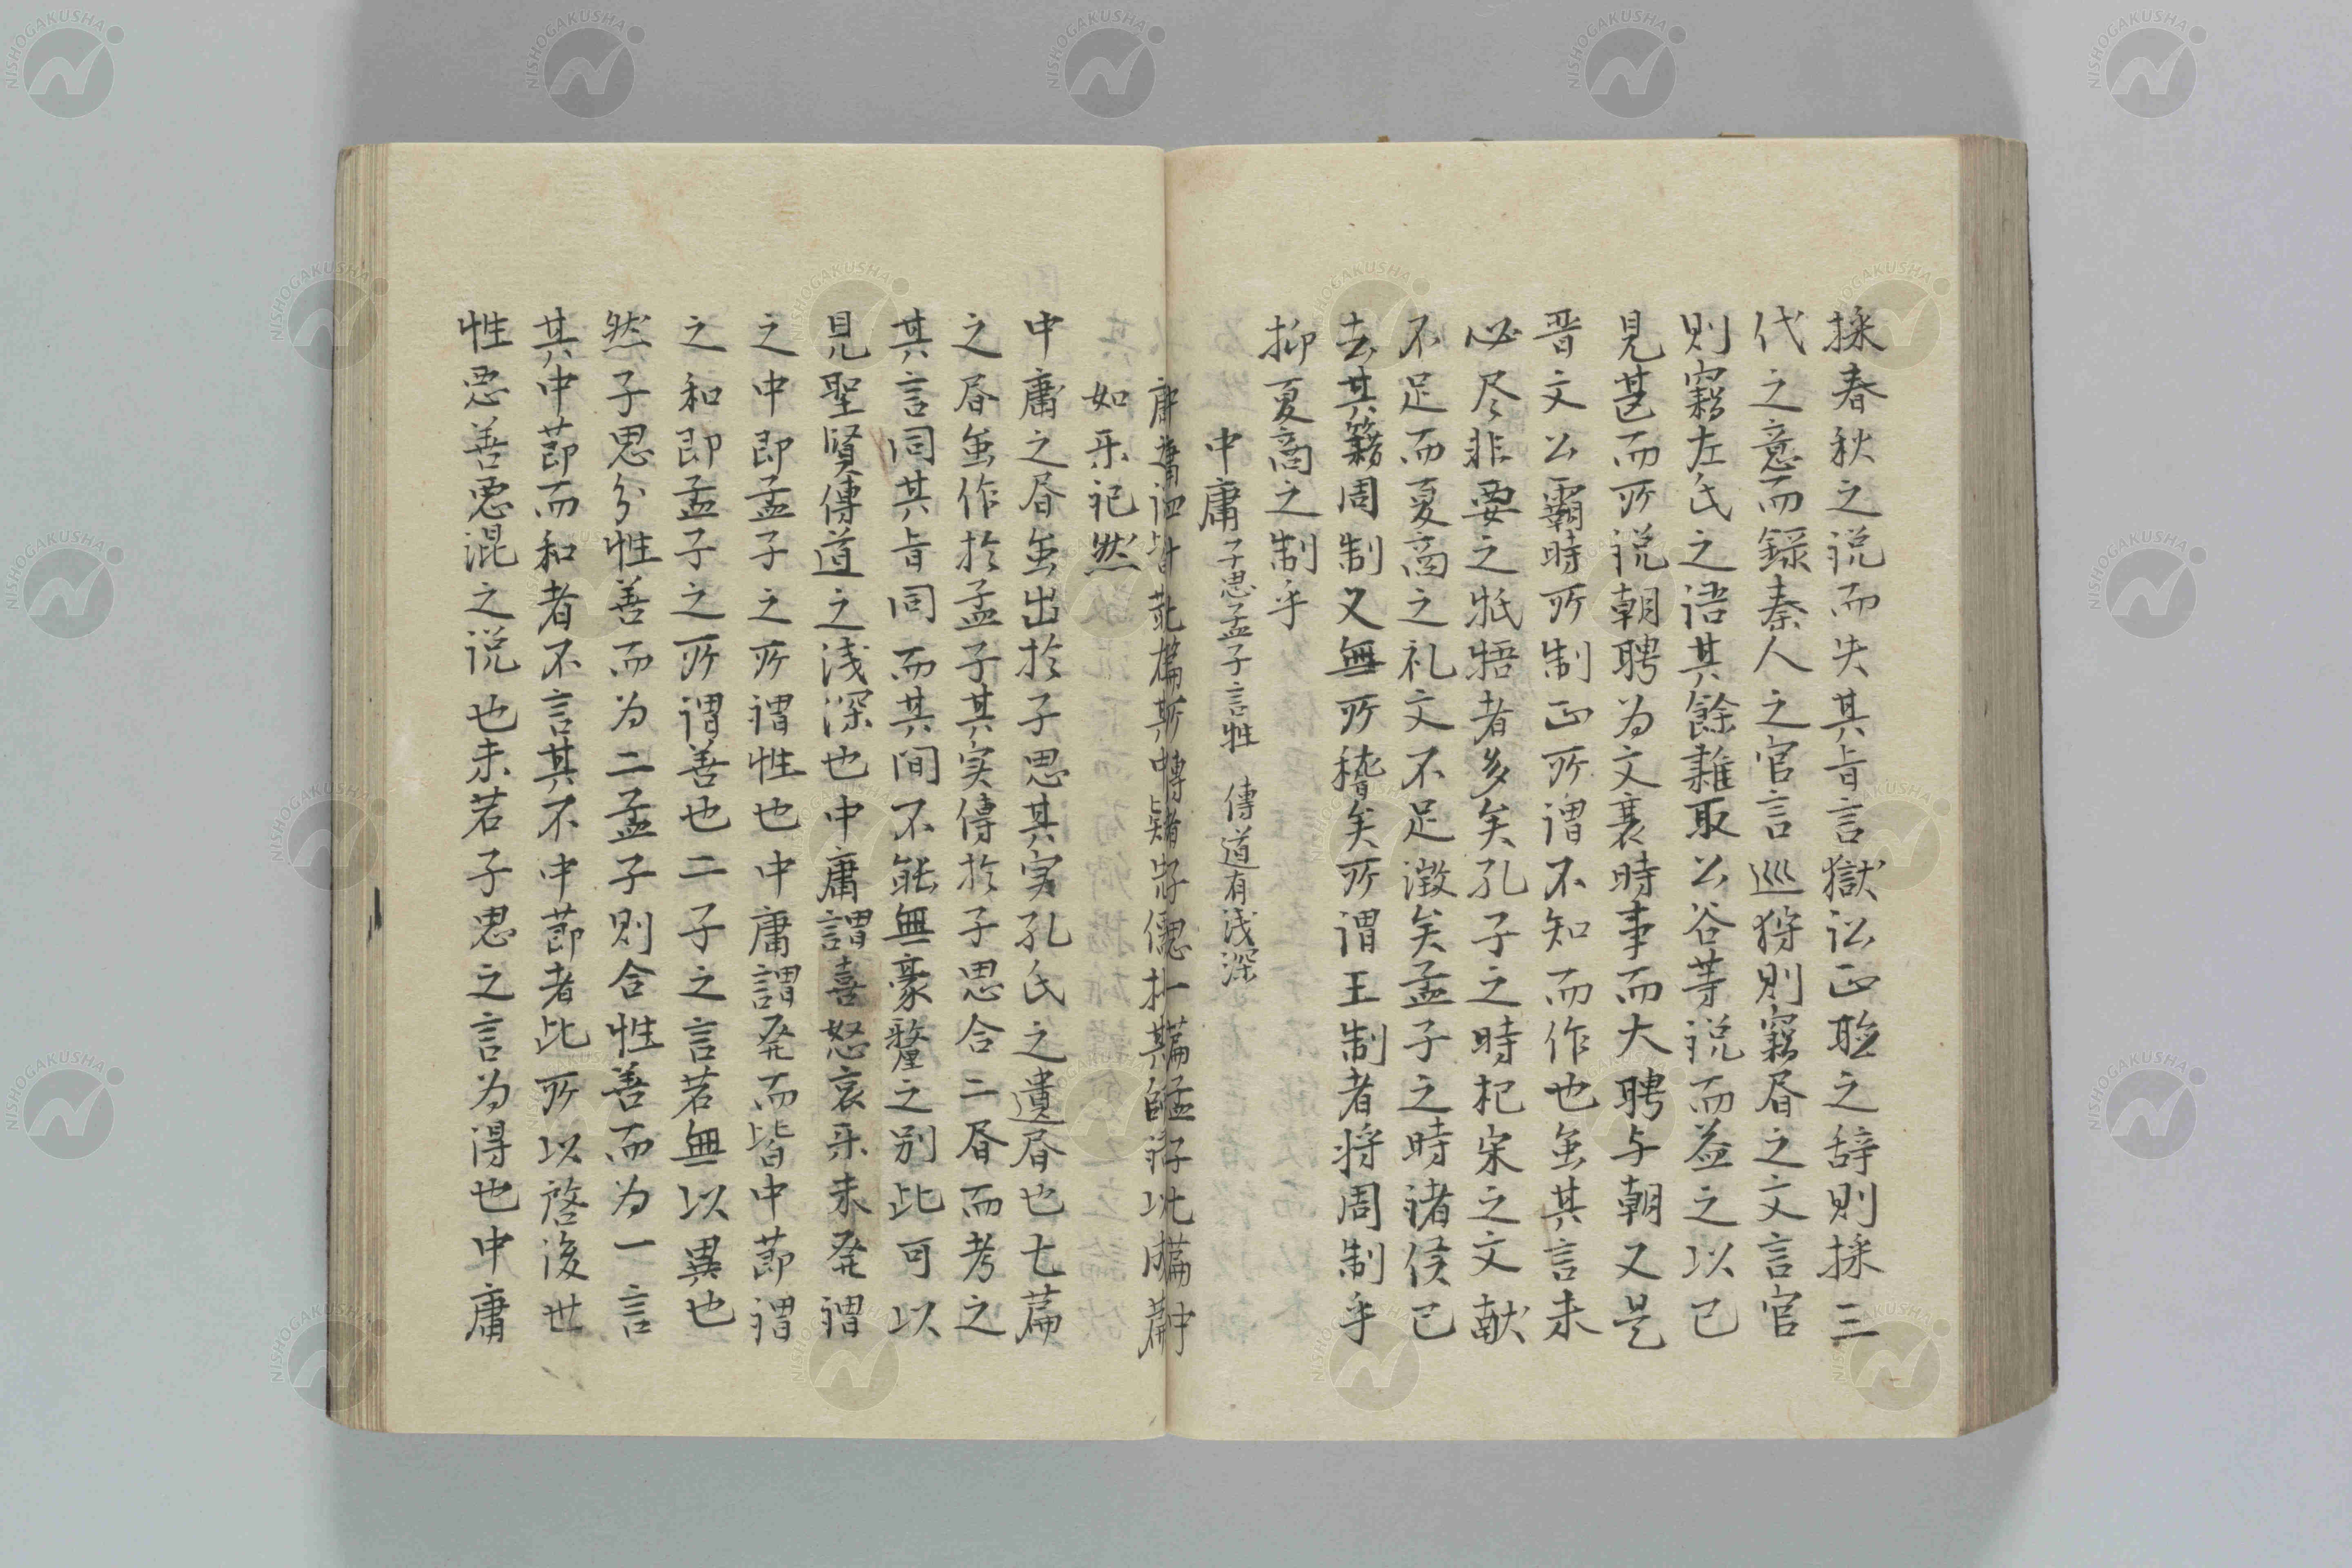 採春秋之説而失其旨言獄訟正聴之辞則採三
代之意而録秦人之官言巡狩則竊昏之文言官
則竊左氏之語其餘雜取公谷等説而益之以己
見甚而所説朝聘為文襄時事而大聘与朝又是
晋文公霸時所制正所謂不知而作也虽其言未
必尽非要之牴牾者多矣孔子之時杞宋之文献
不足而夏商之礼文不足徴矣孟子之時諸侯已
去其籍周制又無所稽矣所謂王制者将周制乎
抑夏商之制乎
中庸 子思孟子言性 傳道有浅深
如乐记然
中庸之昏虽出於子思其实孔氏之遺昏也七篇
之昏虽作於孟子其実傳於子思合二昏而考之
其言同其旨同而其间不能無豪釐之别此可以
見聖賢傳道之浅深也中庸謂喜怒哀乐未発謂
之中即孟子之所謂性也中庸謂発而皆中莭謂
之和即孟子之所謂善也二子之言若無以異也
然子思分性善而为二孟子則合性善而为一言
其中莭而和者不言其不中莭者此所以啓後世
性悪善悪混之说也未若子思之言为得也中庸
NISHOGAKUSHA